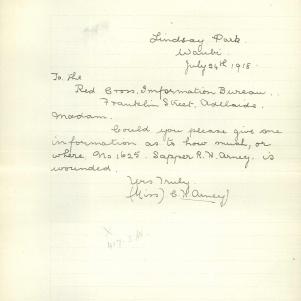 Lindsay Park.
Waubi.
July 24th 1918.
To the
Red Cross, Information Bureau.
Franklin Street, Adelaide.
Madam.
Could you please give me
information as to how much, or
where No 1625. Sapper R. H. Amey. is
wounded.
Yrs Truly
(Miss) C H Amey)